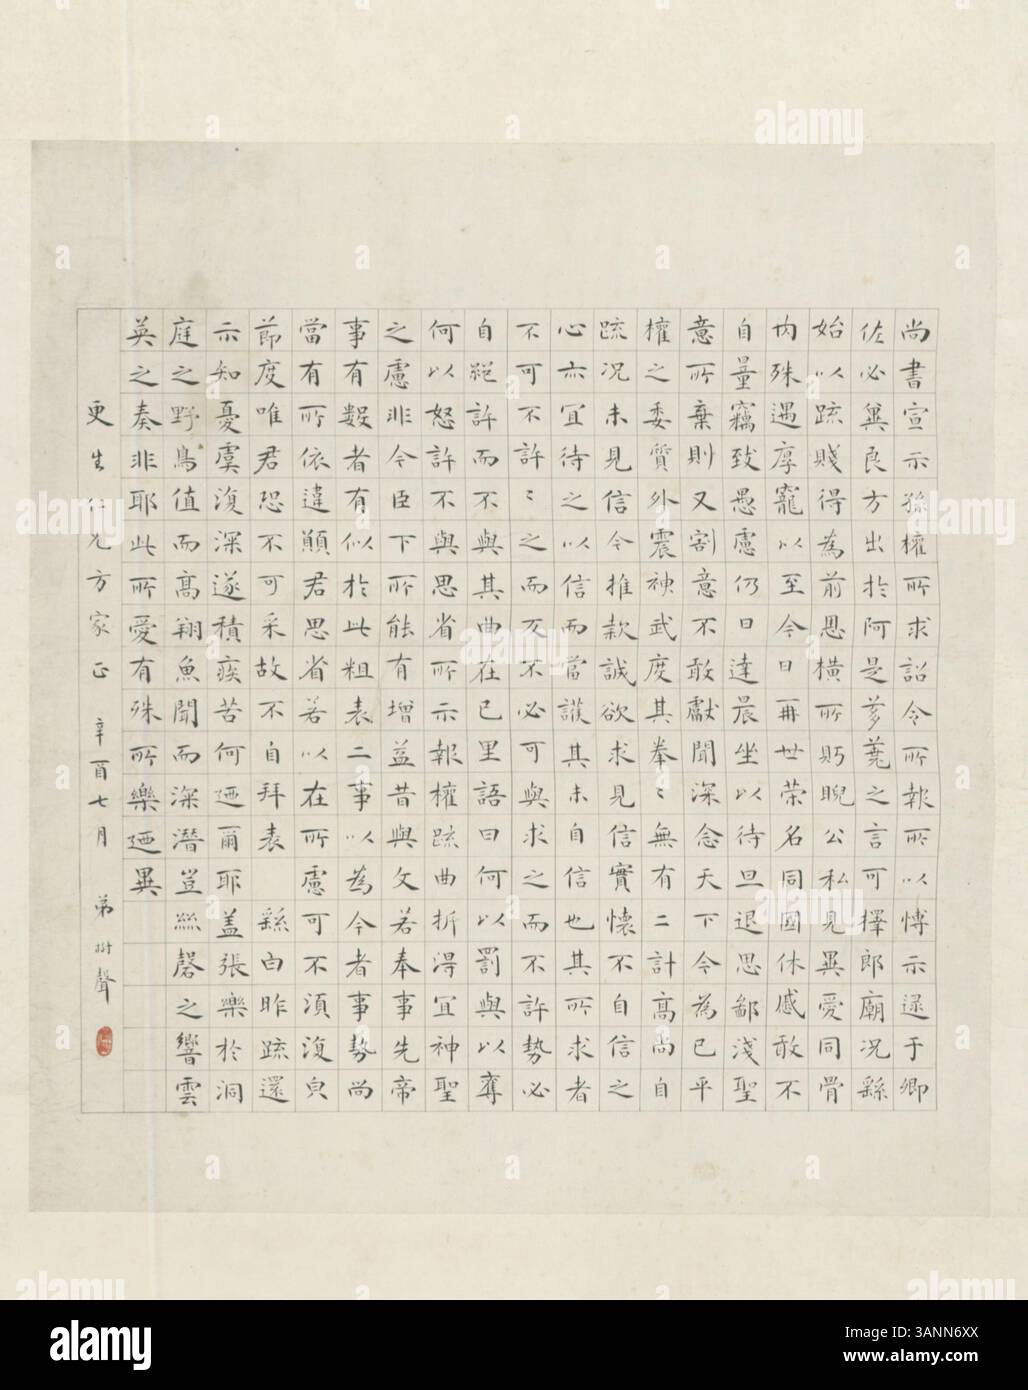 尚書宣示孫權所求詔令所報所以博示逮于卿
佐必冀良方出於阿是芻蕘之言可擇郎廟況繇
始以疏賤得為前恩橫所眄睨公私見異愛同骨
內殊遇厚寵以至今日再世榮名同國休慼敢不
自量竊致愚慮仍日達晨坐以待旦退思鄙淺聖
意所棄則又割意不敢獻聞深念天下今為已平
權之委質外震神武度其拳〻無有二計高尚自
疏況未見信今推款誠欲求見信實懷不自信之
心亦宜待之以信而當護其未自信也其所求者
不可不許〻之而反不必可與求之而不許勢必
自絕許而不與其曲在己里語曰何以罰與以奪
何以怒許不與思省所示報權疏曲折得宜神聖
之慮非今臣下所能有增益昔與文若奉事先帝
事有數者有似於此粗表二事以為今者事勢尚
當有所依違願君思省若以在所慮可不須復皃
節度唯君恐不可采故不自拜表 繇白昨疏還
示知憂虞復深遂積疾苦何迺爾耶蓋張樂於洞
庭之野鳥值而高翔魚聞而深潛豈絲磬之響雲
英之奏非耶此所愛有殊所樂迺異
更生仁兄方家正 辛酉七月 弟樹聲
alamy
Image ID: 3ANN6XX
www.alamy.com